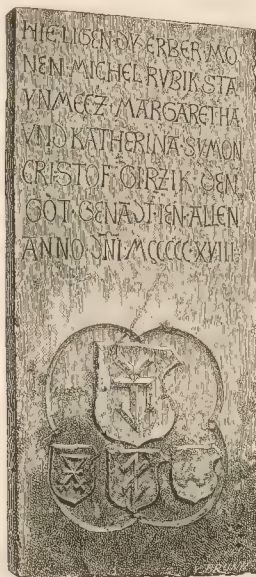 HIE·LIGEN·DY·ERBER·MO
NEN·MICHEL·RVBIK·STA
YNMECZ·MARGARETHA
VND KATHERINA·SYMON
CRISTOF·GIRZIK·DEN
GOT·GENAD·IEN·ALLEN
ANNO·DNI·MCCCCC·XVIII